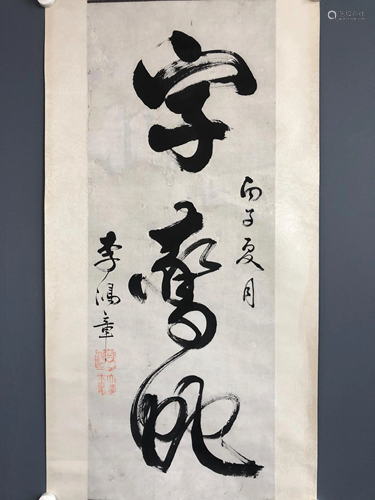 字驚虵
丙子夏月
李鴻章